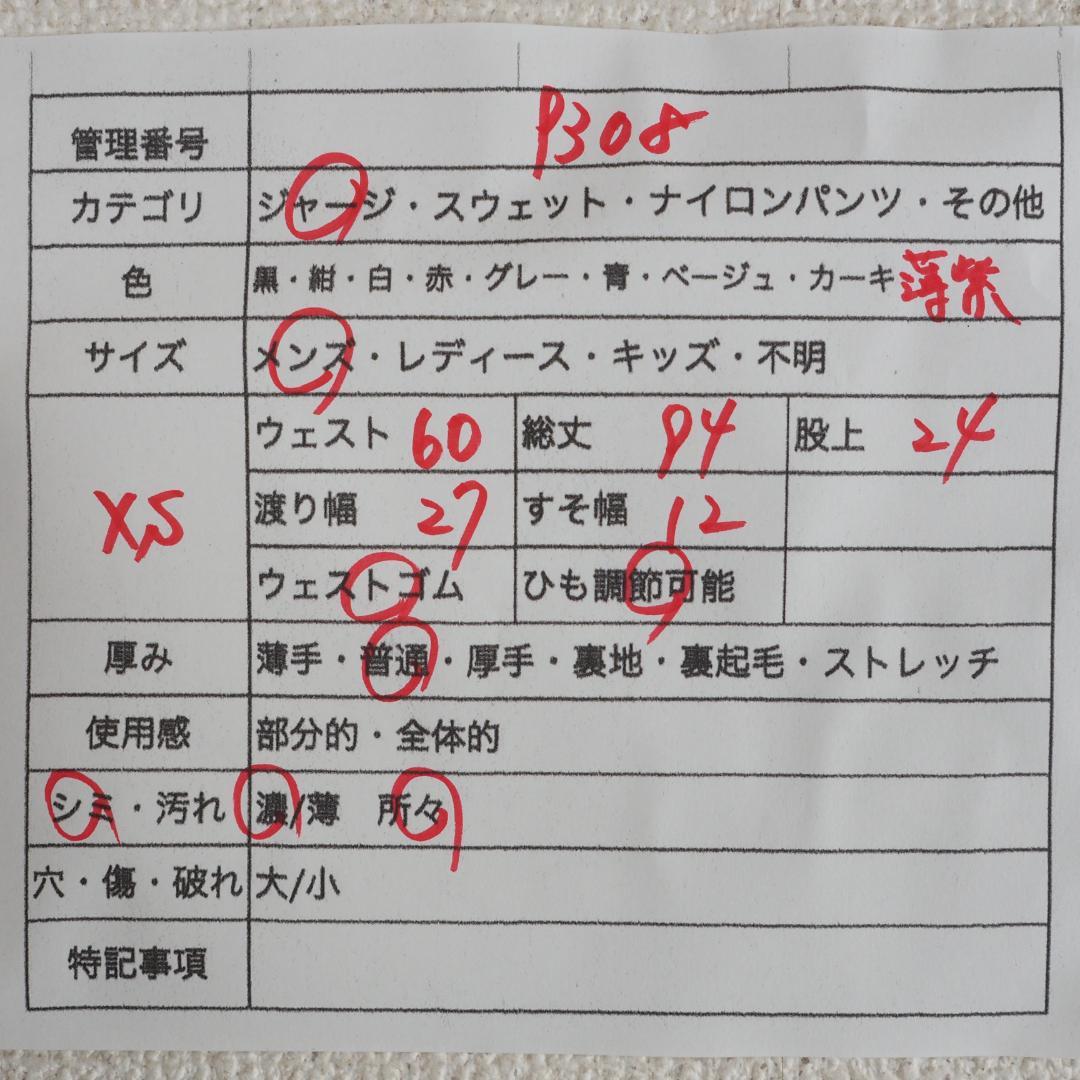 管理番号 P308
カテゴリ ジャージ・スウェット・ナイロンパンツ・その他
色 黒・紺・白・赤・グレー・青・ベージュ・カーキ 薄紫
サイズ メンズ・レディース・キッズ・不明
XS ウェスト 60 総丈 94 股上 24
渡り幅 27 すそ幅 12
ウェストゴム ひも調節可能
厚み 薄手・普通・厚手・裏地・裏起毛・ストレッチ
使用感 部分的・全体的
シミ・汚れ 濃/薄 所々
穴・傷・破れ 大/小
特記事項